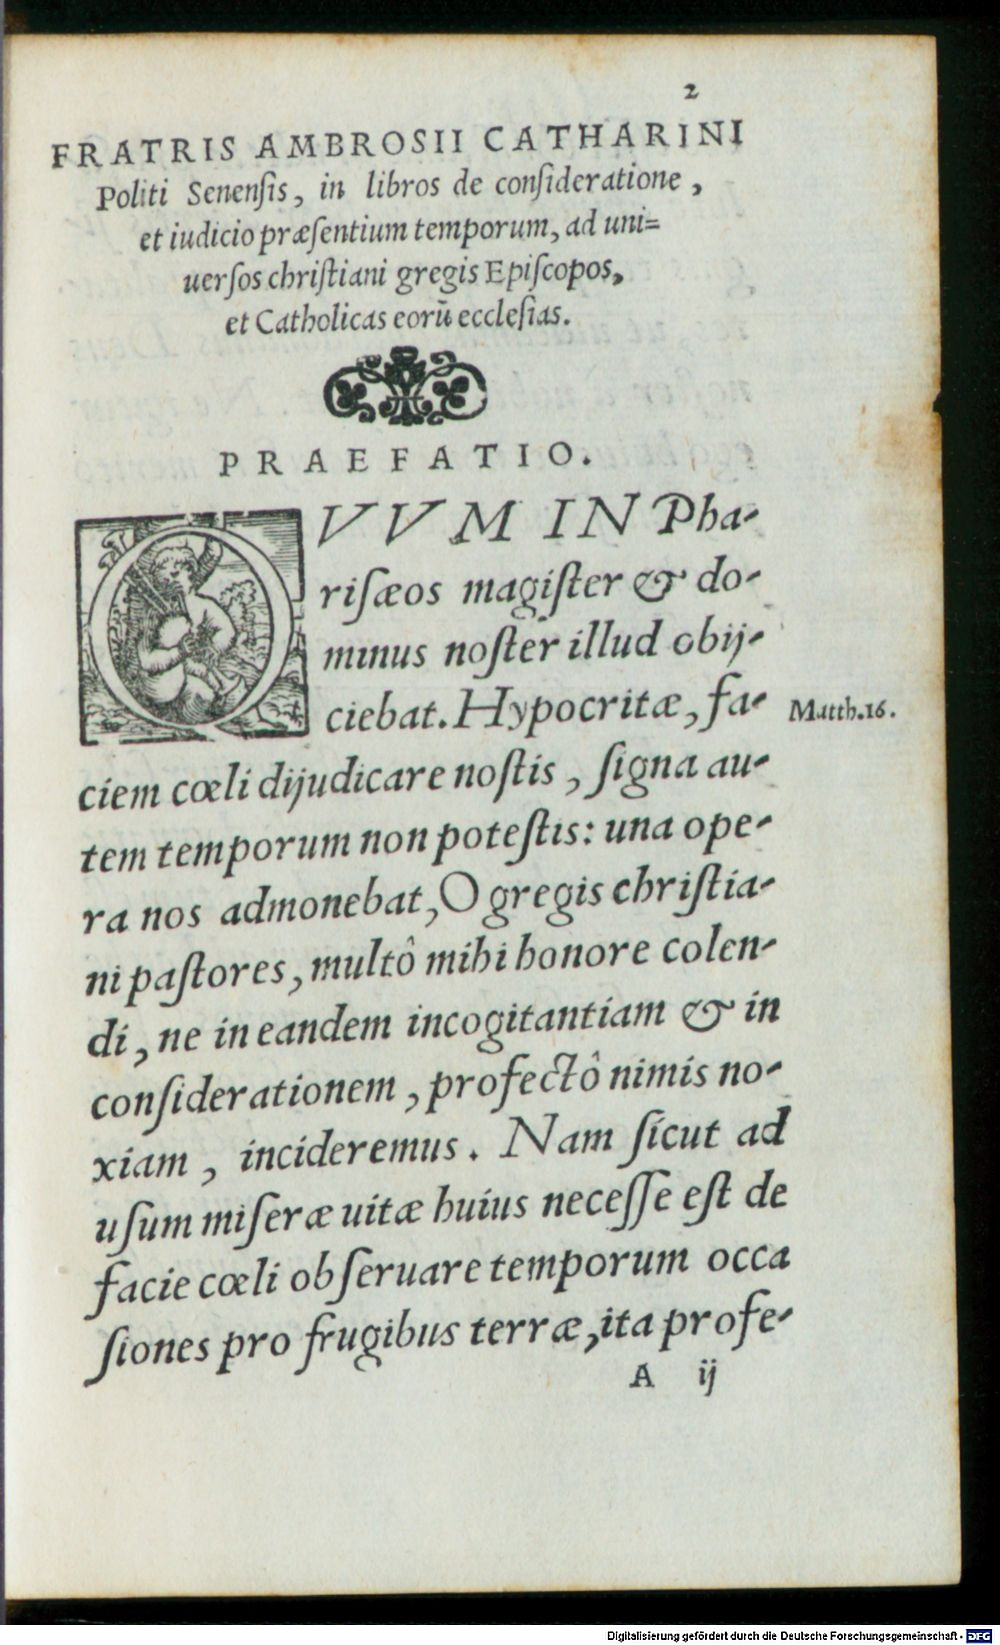 2
FRATRIS AMBROSII CATHARINI
Politi Senenſis, in libros de conſideratione,
et iudicio præſentium temporum, ad uni=
uerſos chriſtiani gregis Epiſcopos,
et Catholicas eorũ eccleſias.
PRAEFATIO.
QVVM IN Pha-
riſæos magiſter & do-
minus noſter illud obij-
ciebat. Hypocritæ, fa-
Matth.16.
ciem cœli dijudicare noſtis, ſigna au-
tem temporum non poteſtis: una ope-
ra nos admonebat, O gregis chriſtia-
ni paſtores, multô mihi honore colen-
di, ne in eandem incogitantiam & in
conſiderationem, profectô nimis no-
xiam, incideremus. Nam ſicut ad
uſum miſeræ uitæ huius neceſſe eſt de
facie cœli obſeruare temporum occa
ſiones pro frugibus terræ, ita profe-
A ij
Digitalisierung gefördert durch die Deutsche Forschungsgemeinschaft - DFG